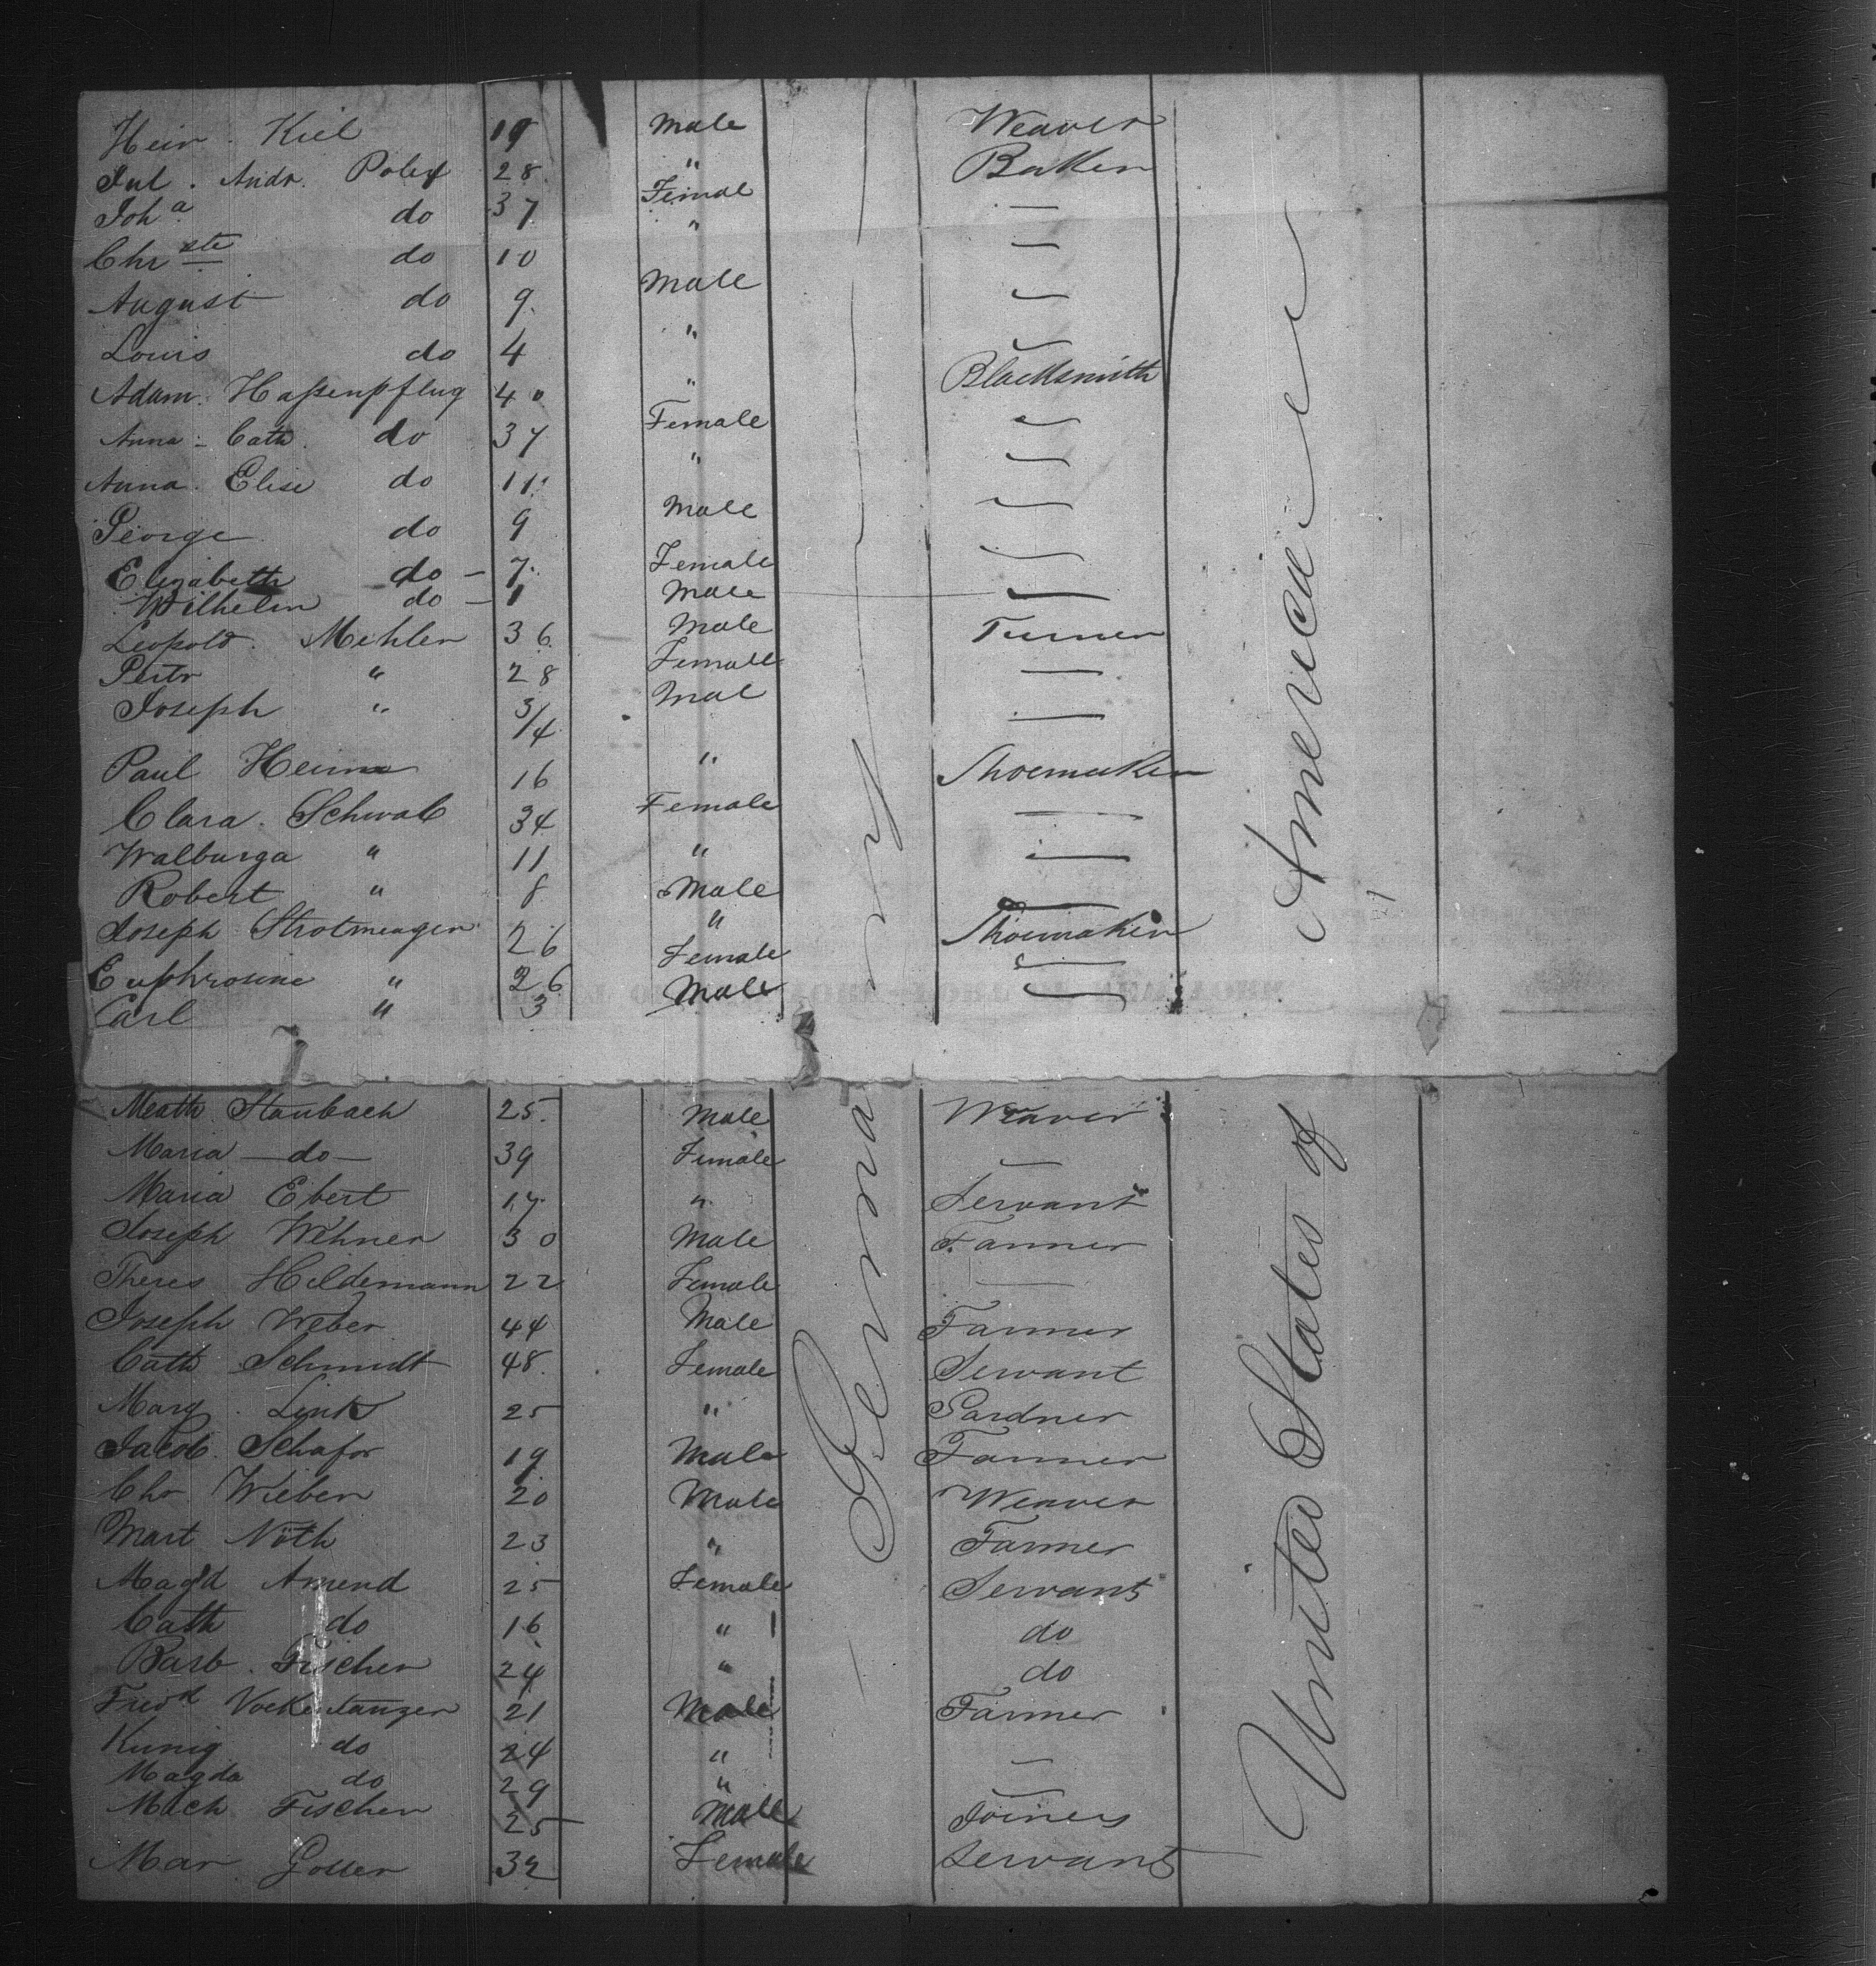 Heir. Kiel 19 Male Weaver
Jul. Andr. Polex 28 " Baker
Joh a do 37 Femal —
Chr ste do 10 " —
August do 9 Male —
Louis do 4 " —
Adam. Haßenpflug 40 " Blacksmith
Anna - Cath. do 37 Female —
Anna. Elise do 11 " —
George do 9 Male —
Elizabeth do - 7 Female —
Wilhelm do - 1 Male —
Leopold. Mehler 36 Male Turner
Petr " 28 Female —
Joseph " 3/4 Mal —
Paul Heim 16 " Shoemaker
Clara. Schwab 34 Female —
Walburga " 11 " —
Robert " 8 Male —
Joseph Strotmeager 26 " Shoemaker
Euphrosine " 26 Female —
Carl " 3 Male —
Math Staubach 25 Male Weaver
Maria — do — 39 Female —
Maria Ebert 17 " Servant
Joseph Wehner 30 Male Farmer
Theres Heldemann 22 Female —
Joseph Weber 44 Male Farmer
Cath Schmidt 48 Female Servant
Marg. Link 25 " Gardner
Jacob. Schafer 19 Male Farmer
Chr Wieber 20 Male Weaver
Mart Nöth 23 " Farmer
Magd Amend 25 Female Servant
Cath do 16 " do
Barb. Fischer 24 " do
Fried 21 Male Farmer
Kunig do 24 " —
Magda do 29 " —
Mich Fischer 25 Male Joiners
Mar Goller 32 Female Servant
Germany
United States of America